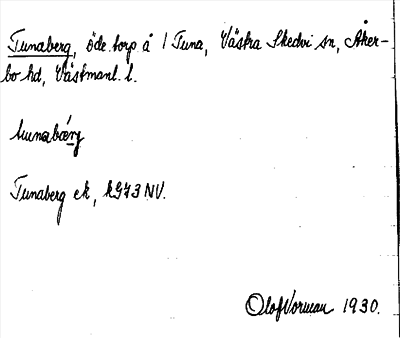 Tunaberg, öde torp å 1 Tuna, Västra Skedvi sn, Åker-
bo hd, Västmanl. l.
tʉnabærj
Tunaberg ek, k 973 NV.
Olof Vorman 1930.